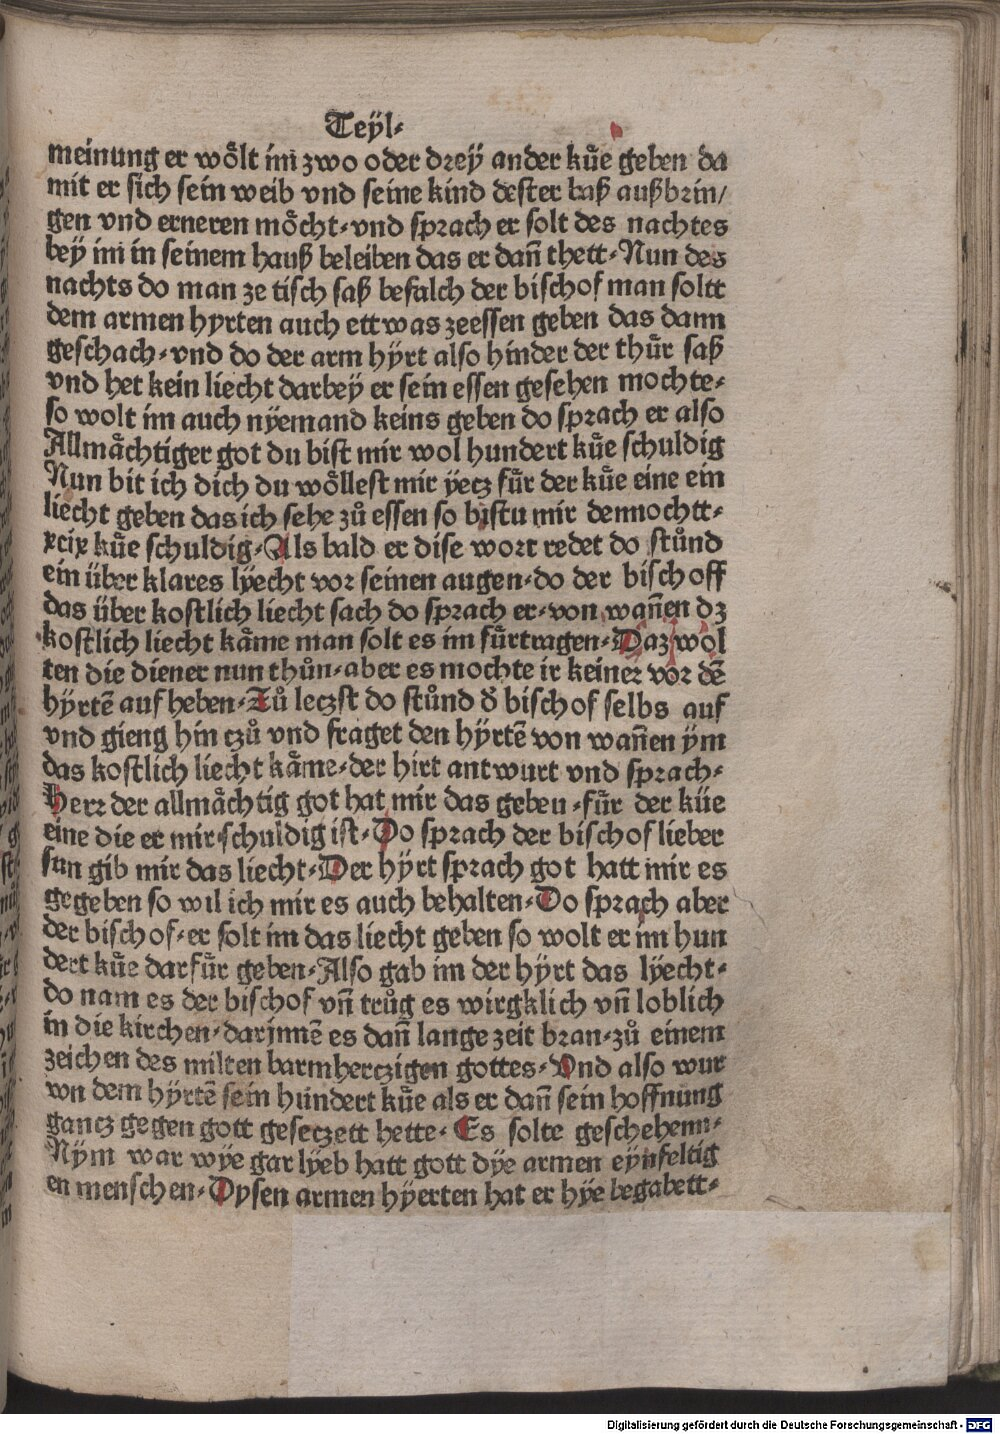 Teÿl⸗
meinung er wo̊lt im zwo oder drey ander kůe geben da
mit er sich sein weib vnd seine kind dester baß außbrin/
gen vnd erneren mo̊cht⸗vnd sprach er solt des nachtes
beÿ im in seinem hauß beleiben das er dañ thett⸗Nun des
nachts do man ze tisch saß befalch der bischof man soltt
dem armen hyrten auch ettwas zeessen geben das dann
geschach⸗vnd do der arm hÿrt also hinder der thůr saß
vnd het kein liecht darbeÿ er sein essen gesehen mochte⸗
so wolt im auch nÿemand keins geben do sprach er also
Allma̋chtiger got du bist mir wol hundert kůe schuldig
Nun bit ich dich du wo̊llest mir ÿecz fůr der kůe eine ein
liecht geben das ich sehe zů essen so bistu mir dennochtt⸗
xcix kůe schuldig⸗Als bald er dise wort redet do stůnd
ein über klares lÿecht vor seinen augen⸗do der bischoff
das über kostlich liecht sach do sprach er⸗von wañen dz
kostlich liecht ka̋me man solt es im fůrtragen⸗Daz wol
ten die diener nun thůn⸗aber es mochte ir keiner vor dē
hÿrtē auf heben⸗Zů leczst do stůnd d̄ bischof selbs auf
vnd gieng hin czů vnd fraget den hÿrtē von wañen ÿm
das kostlich liecht ka̋me⸗der hirt antwurt vnd sprach⸗
Herr der allma̋chtig got hat mir das geben⸗fůr der kůe
eine die er mir schuldig ist⸗Do sprach der bischof lieber
sun gib mir das liecht⸗Der hÿrt sprach got hatt mir es
gegeben so wil ich mir es auch behalten⸗Do sprach aber
der bischof⸗er solt im das liecht geben so wolt er im hun
dert kůe darfůr geben⸗Also gab im der hÿrt das lÿecht⸗
do nam es der bischof vñ trůg es wirgklich vñ loblich
in die kirchen⸗darjnnē es dañ lange zeit bran⸗zů einem
zeichen des milten barmherczigen gottes⸗Vnd also wur
wn dem hÿrtē sein hundert kůe als er dañ sein hoffnung
gancz gegen gott geseczett hette⸗Es solte geschehenn⸗
Nÿm war wÿe gar lÿeb hatt gott dÿe armen eÿnfeltig
en menschen⸗Dysen armen hÿerten hat er hÿe begabett⸗
Digitalisierung gefördert durch die Deutsche Forschungsgemeinschaft - DFG